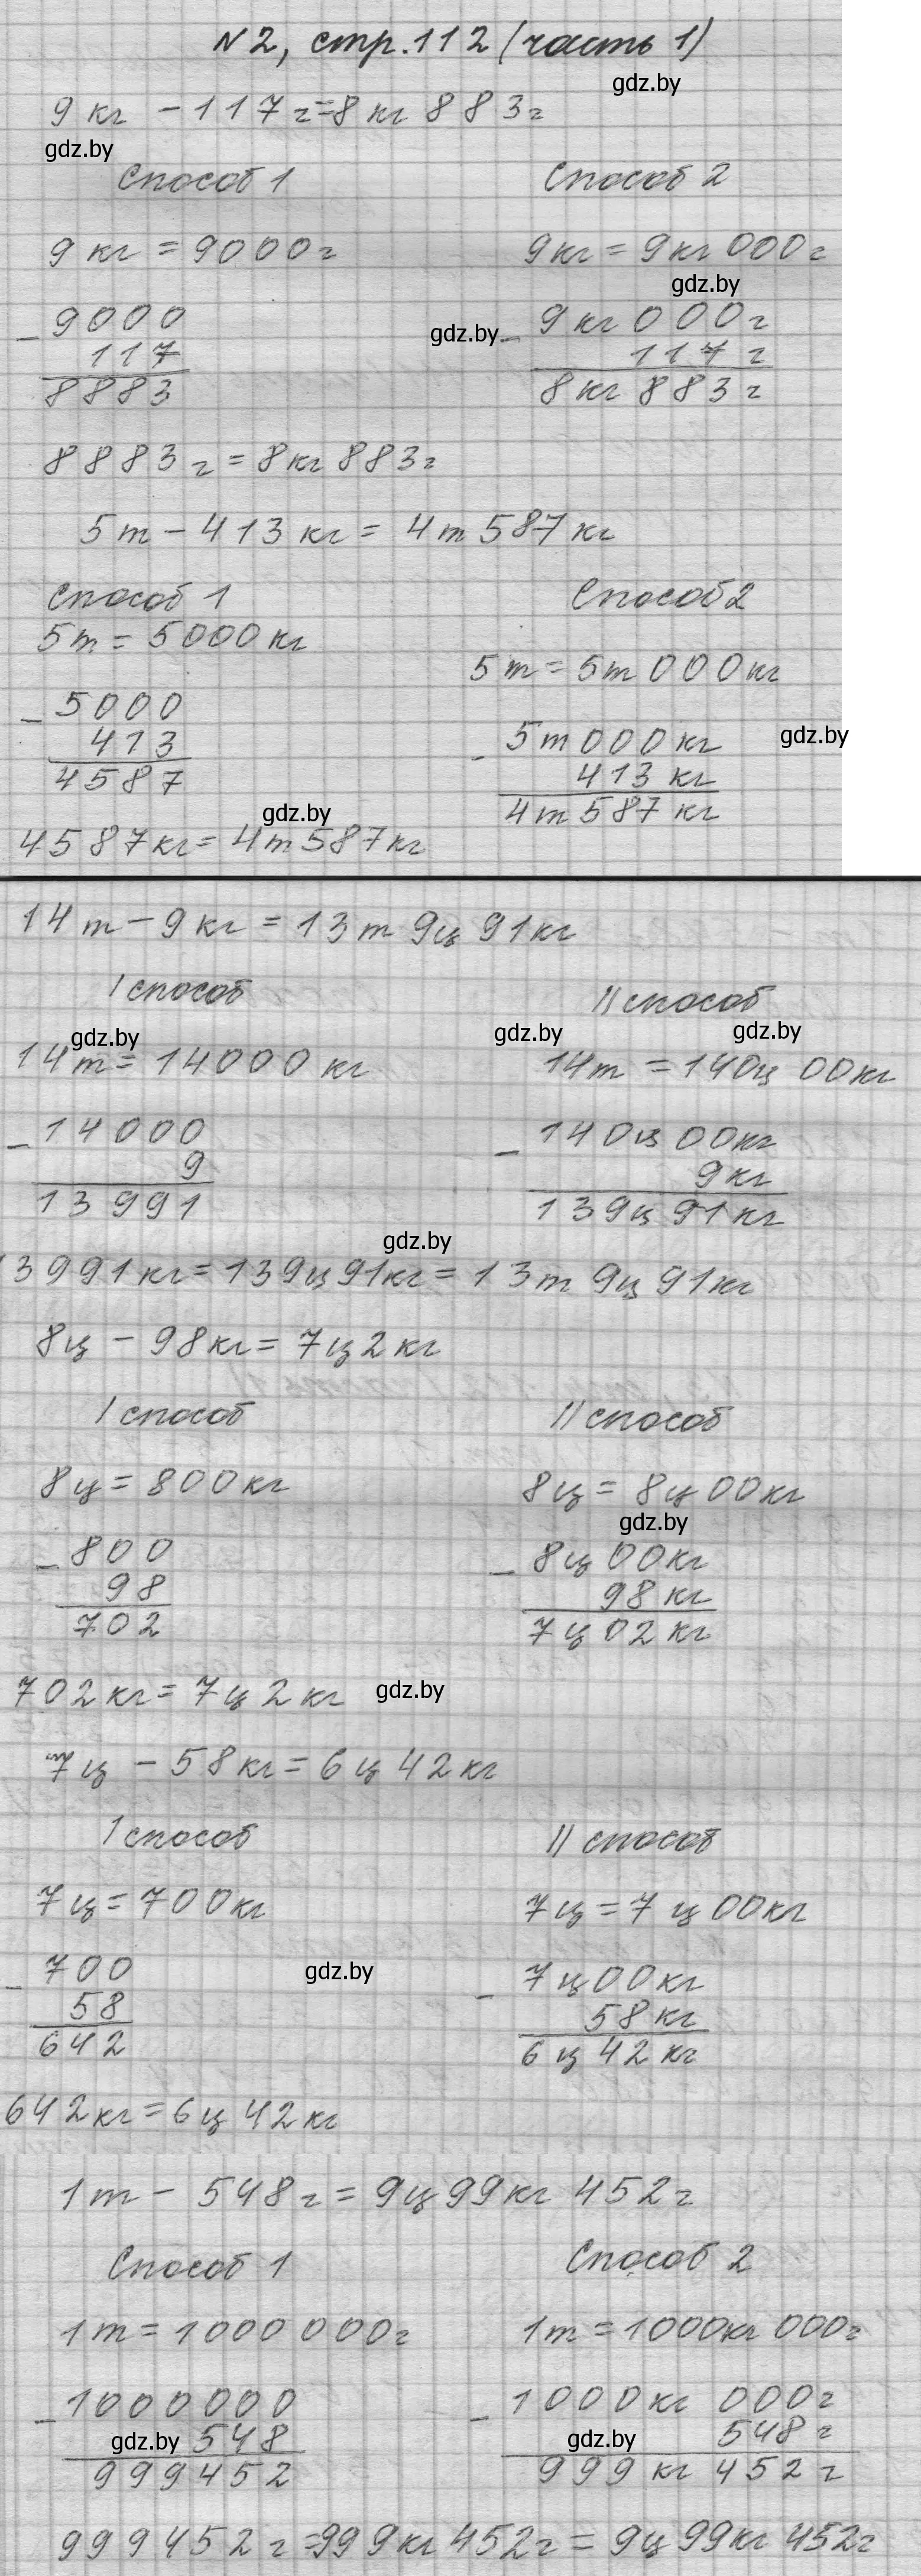 №2, стр. 112 (часть 1)
gdz.by
9 кг - 117 г = 8 кг 883 г
gdz.by
Способ 1 Способ 2
9 кг = 9000 г 9 кг = 9 кг 000 г
gdz.by
- 9000 gdz.by - 9 кг 000 г
117 117 г
8883 8 кг 883 г
8883 г = 8 кг 883 г
5 т - 413 кг = 4 т 587 кг
Способ 1 Способ 2
5 т = 5000 кг
5 т = 5 т 000 кг
- 5000
413 - 5 т 000 кг gdz.by
4587 413 кг
gdz.by 4 т 587 кг
4587 кг = 4 т 587 кг
14 т - 9 кг = 13 т 9 ц 91 кг
I способ II способ
gdz.by gdz.by gdz.by
14 т = 14000 кг 14 т = 140 ц 00 кг
- 14000 - 140 ц 00 кг
9 9 кг
13991 139 ц 91 кг
gdz.by
13991 кг = 139 ц 91 кг = 13 т 9 ц 91 кг
8 ц - 98 кг = 7 ц 2 кг
I способ II способ
8 ц = 800 кг 8 ц = 8 ц 00 кг
gdz.by
- 800 - 8 ц 00 кг
98 98 кг
702 7 ц 02 кг
702 кг = 7 ц 2 кг gdz.by
7 ц - 58 кг = 6 ц 42 кг
I способ II способ
7 ц = 700 кг 7 ц = 7 ц 00 кг
- 700 gdz.by - 7 ц 00 кг
58 58 кг
642 6 ц 42 кг
642 кг = 6 ц 42 кг
1 т - 548 г = 9 ц 99 кг 452 г
Способ 1 Способ 2
1 т = 1000 000 г 1 т = 1000 кг 000 г
- 1000000 - 1000 кг 000 г
gdz.by 548 gdz.by 548 г
999452 999 кг 452 г
999452 г = 999 кг 452 г = 9 ц 99 кг 452 г